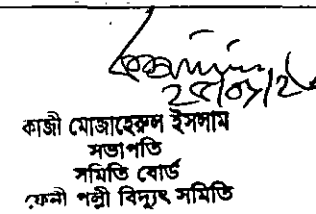 কাজী মোজাহেরুল ইসলাম
সভাপতি
সমিতি বোর্ড
ফেনী পল্লী বিদ্যুৎ সমিতি